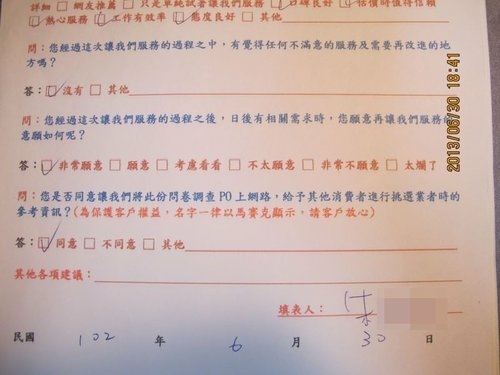 詳細 □ 網友推薦 □ 只是單純試著讓我們服務 □ 口碑良好 □ 估價時值得信賴
□ 熱心服務 □ 工作有效率 □ 態度良好 □ 其他
問：您經過這次讓我們服務的過程之中，有覺得任何不滿意的服務及需要再改進的地
方嗎？
答：□ 沒有 □ 其他
問：您經過這次讓我們服務的過程之後，日後有相關需求時，您願意再讓我們服務的
意願如何呢？
答：□ 非常願意 □ 願意 □ 考慮看看 □ 不太願意 □ 非常不願意 □ 太爛了
問：您是否同意讓我們將此份問卷調查PO上網路，給予其他消費者進行挑選業者時的
參考資訊？(為保護客戶權益，名字一律以馬賽克顯示，請客戶放心)
答：□ 同意 □ 不同意 □ 其他
其他各項建議：
填表人：
民國 102 年 6 月 30 日
2013/06/30 18:41